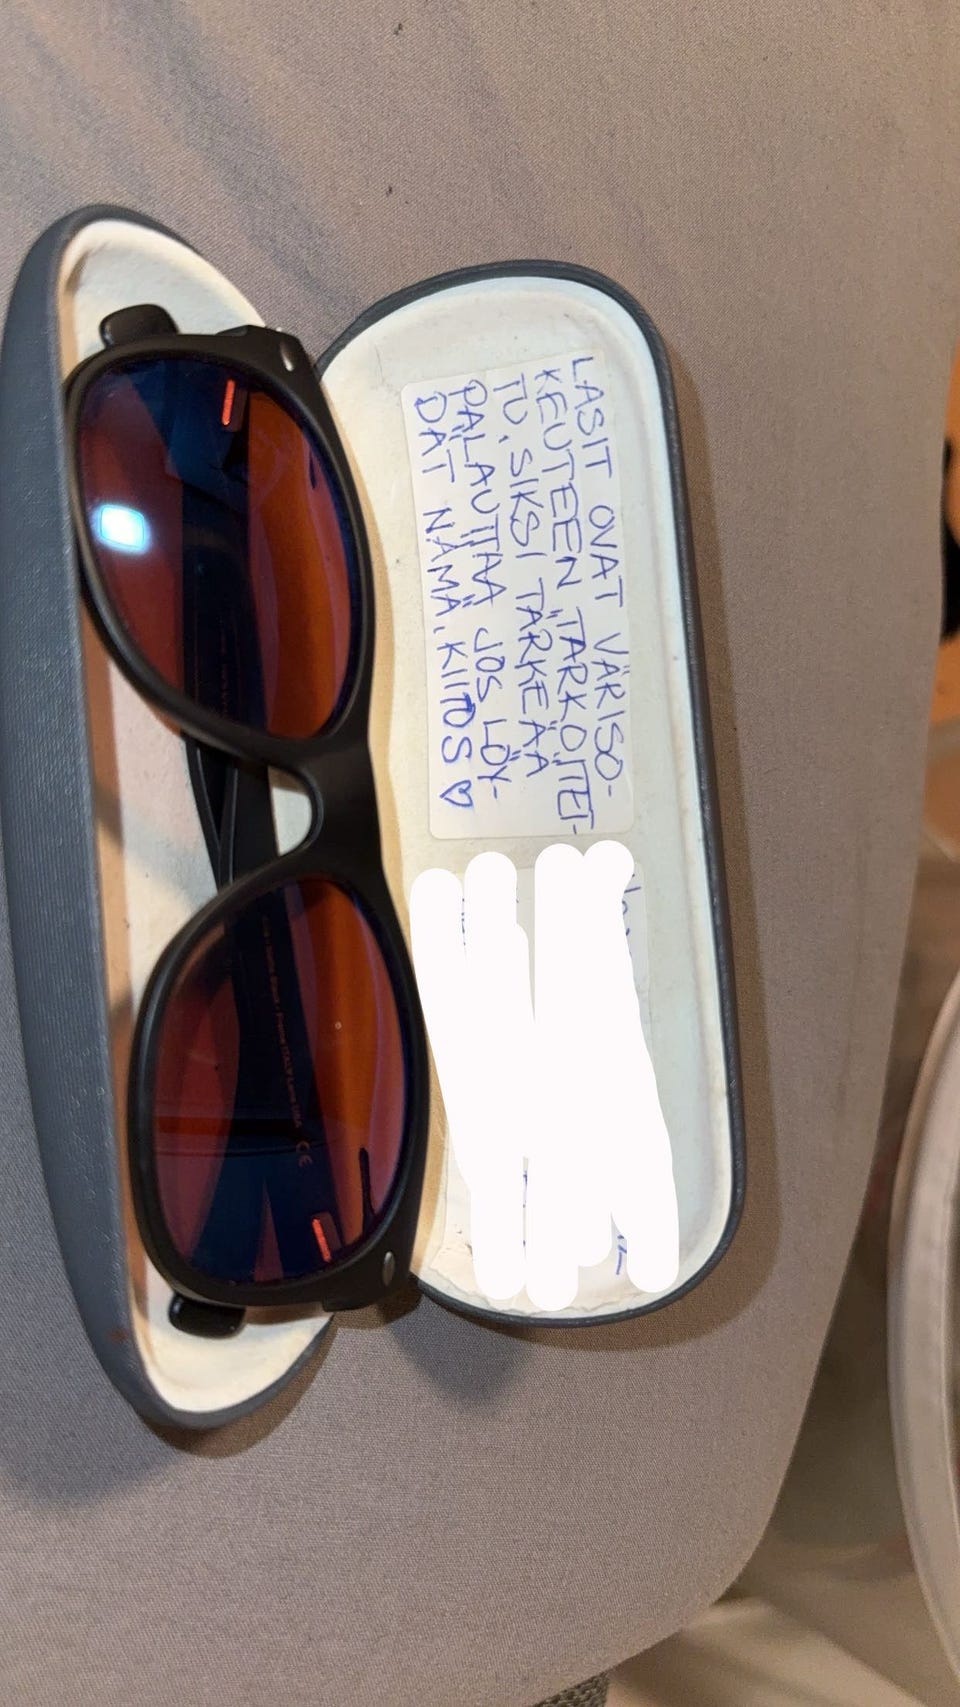 LASIT OVAT VÄRISO-
KEUTEEN TARKOITET-
TU, SIKSI TÄRKEÄÄ
PALAUTTAA JOS LÖY-
DÄT NÄMÄ. KIITOS ♡
Frame ITALY Lens USA CE